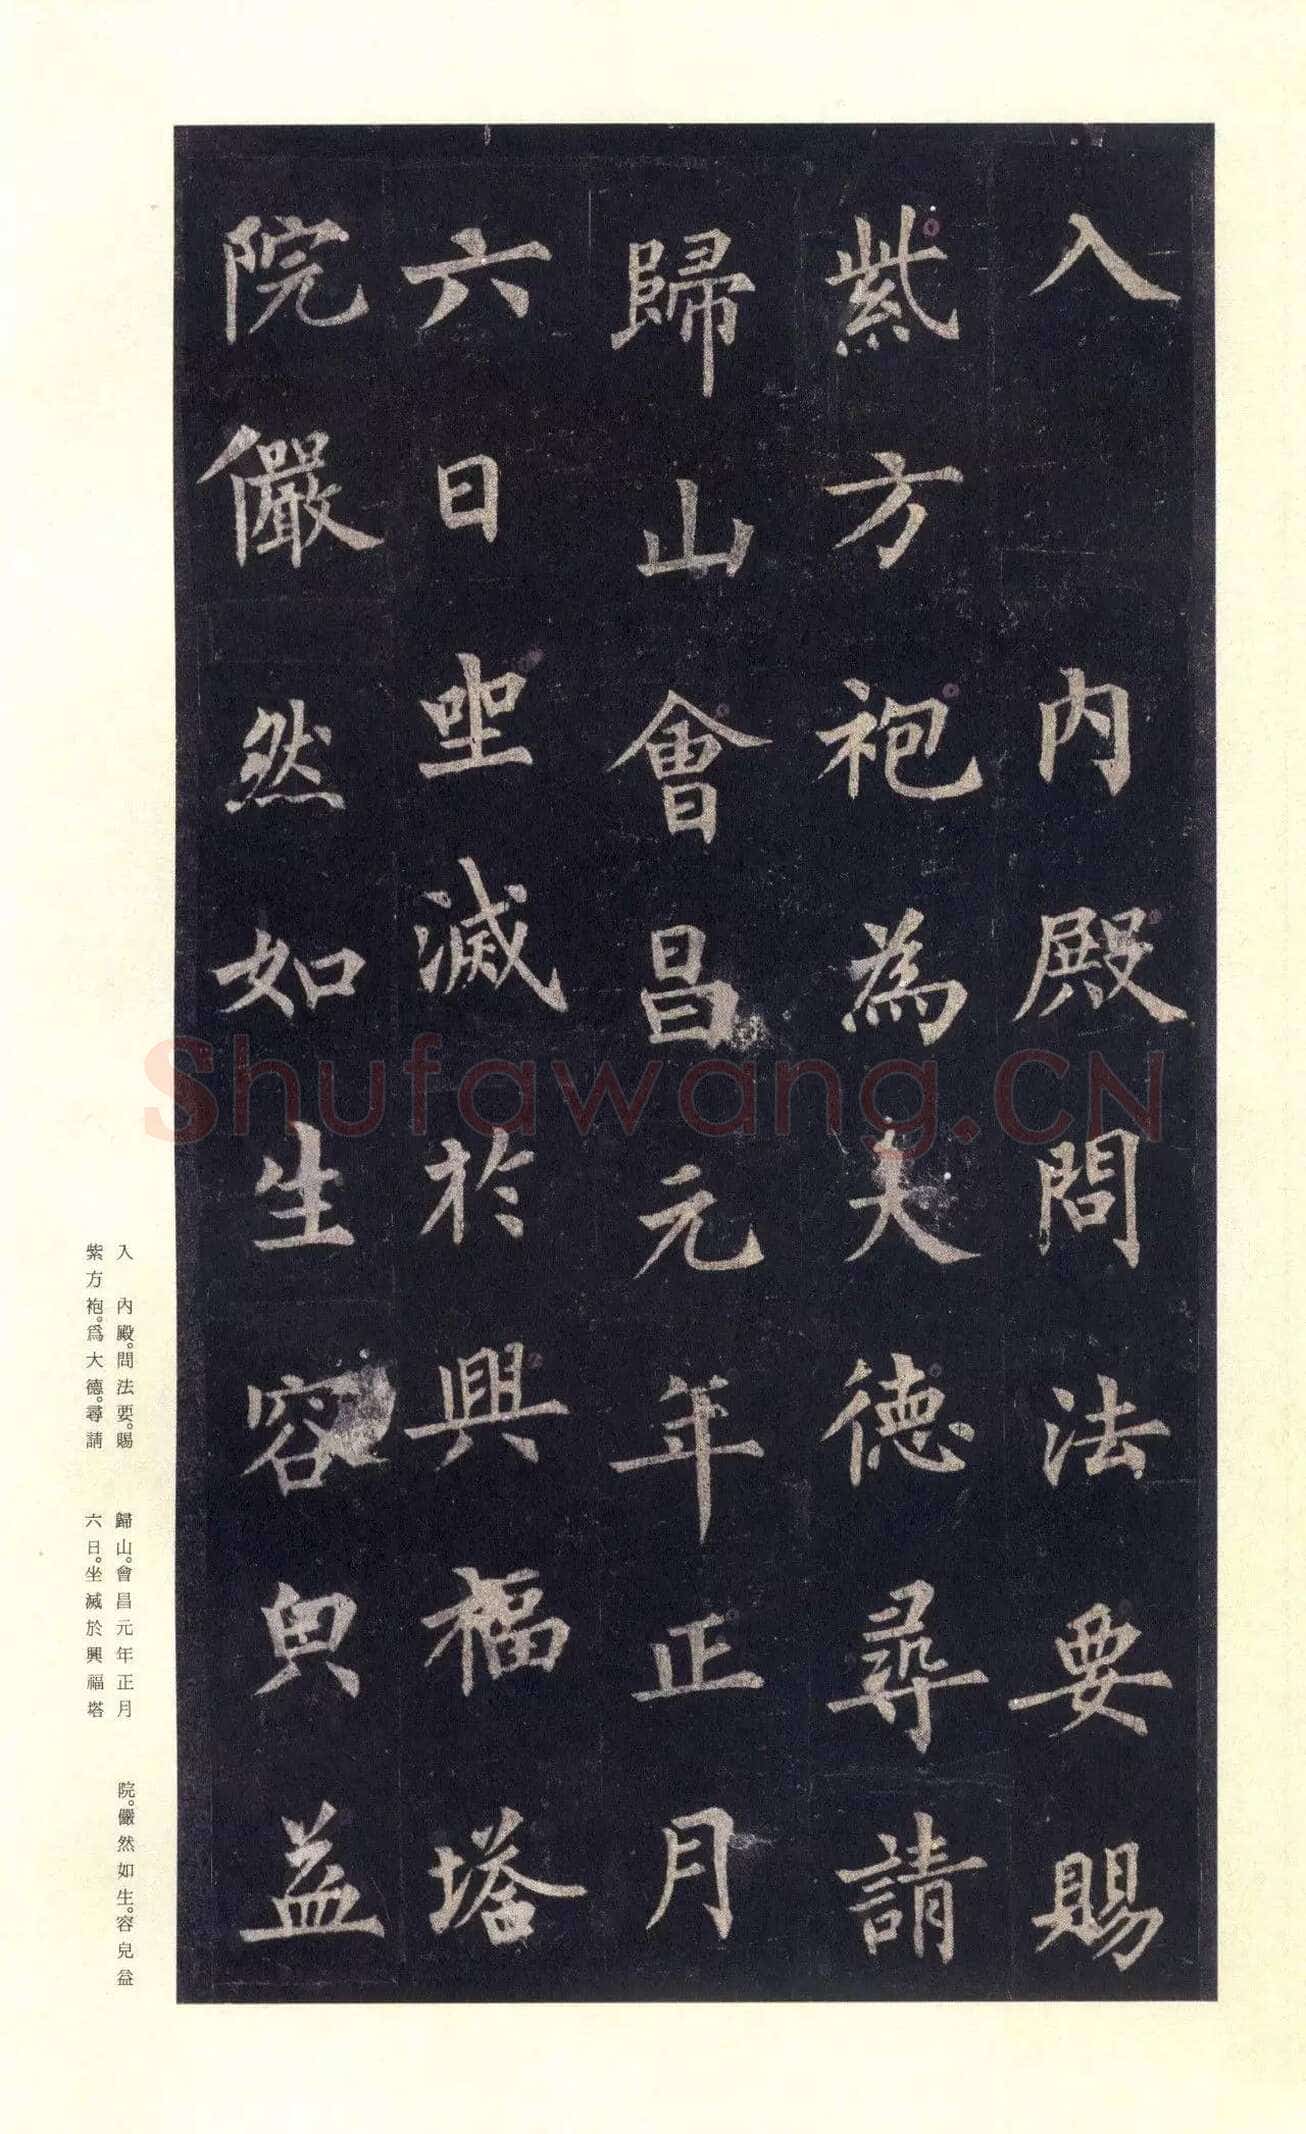 入　內殿問法要賜
紫方袍為大德尋請
歸山會昌元年正月
六日坐滅於興福塔
院儼然如生容皃益
入　內殿。問法要。賜
紫方袍。爲大德。尋請
歸山。會昌元年正月
六日。坐滅於興福塔
院。儼然如生。容皃益
Shufawang.CN